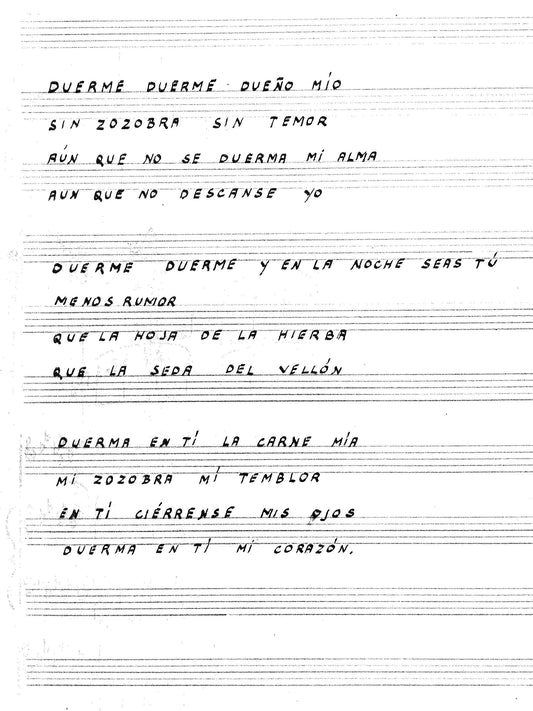 DUERME DUERME DUEÑO MÍO
SIN ZOZOBRA SIN TEMOR
AÚN QUE NO SE DUERMA MÍ ALMA
AUN QUE NO DESCANSE YO
DUERME DUERME Y EN LA NOCHE SEAS TÚ
MENOS RUMOR
QUE LA HOJA DE LA HIERBA
QUE LA SEDA DEL VELLÓN
DUERMA EN TÍ LA CARNE MÍA
MÍ ZOZOBRA MÍ TEMBLOR
EN TÍ CIÉRRENSE MIS OJOS
DUERMA EN TÍ MÍ CORAZÓN.